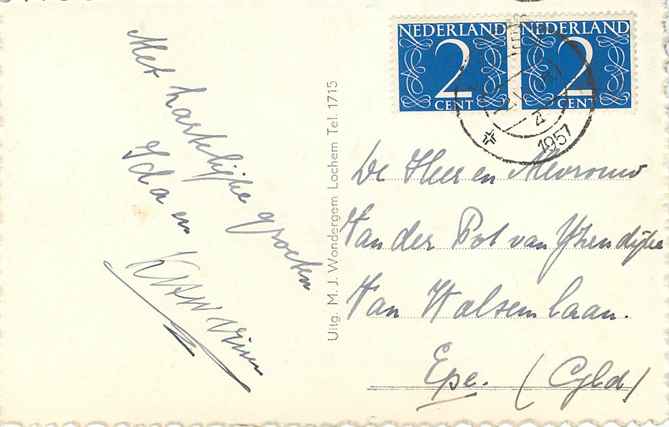 Met hartelijke groeten
Ida en
Uitg. M. J. Wondergem Lochem Tel. 1715
NEDERLAND
2
CENT
NEDERLAND
2
CENT
1957
De Heer en Mevrouw
Van der Pot van
Van Walsemlaan.
Epe. (Gld)